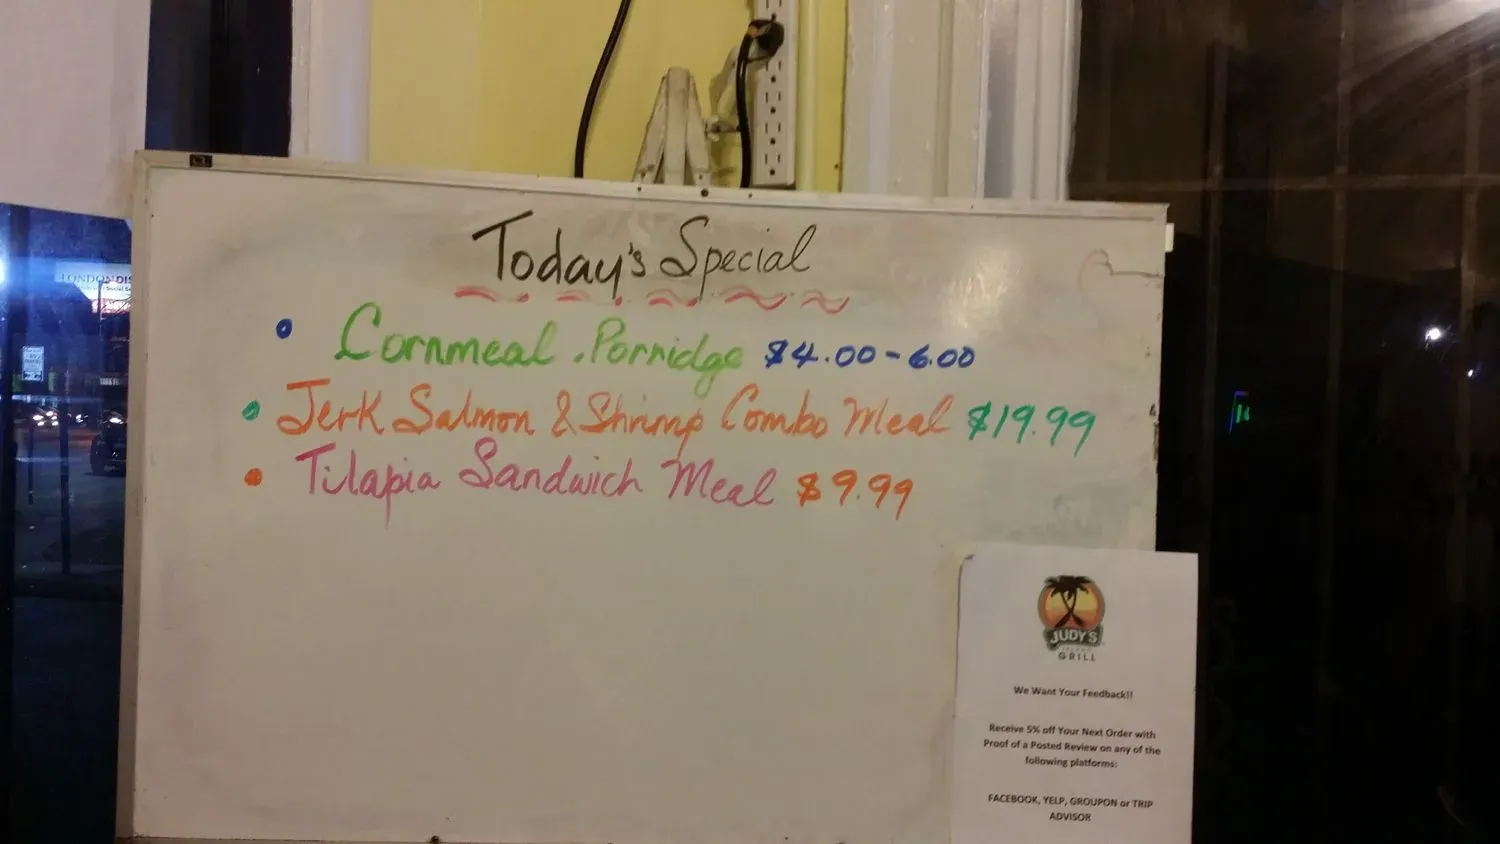 Today's Special
Cornmeal Porridge $4.00-6.00
Jerk Salmon & Shrimp Combo Meal $19.99
Tilapia Sandwich Meal $9.99
LONDON DIS
JUDY'S
GRILL
We Want Your Feedback!!
Receive 5% off Your Next Order with
Proof of a Posted Review on any of the
following platforms:
FACEBOOK, YELP, GROUPON or TRIP
ADVISOR